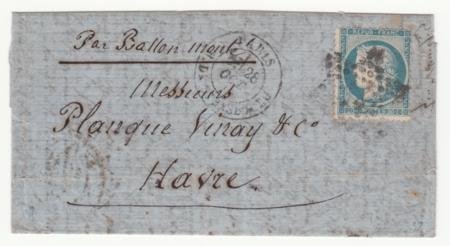 Par Ballon monté
Messieurs
Planque Vinay & Co
Havre
PARIS
28
REPUB. FRANC.